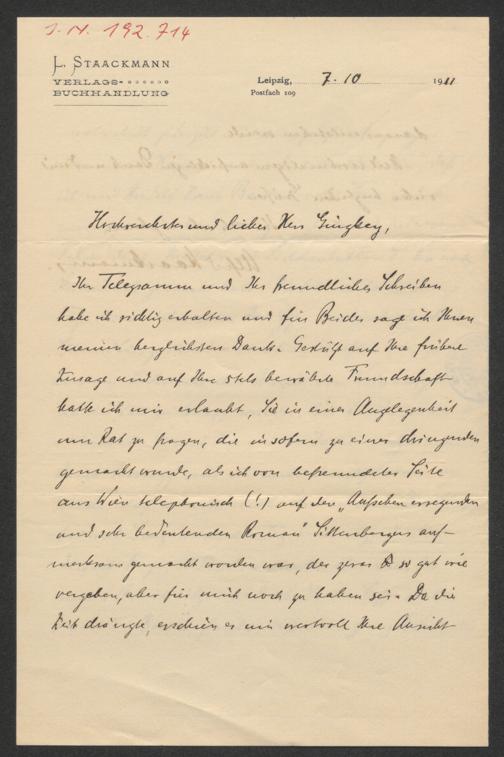 J. N. 192.714
L. STAACKMANN
VERLAGS-
BUCHHANDLUNG
Leipzig, 7. 10 1911
Postfach 109
Hochverehrter und lieber Herr Ginzkey,
Ihr Telegramm und Ihr freundliches Schreiben
habe ich richtig erhalten und für Beides sage ich Ihnen
meinen herzlichsten Dank. Gestützt auf Ihre frühere
Zusage und auf Ihre stets bewährte Freundschaft
hatte ich mir erlaubt, Sie in einer Angelegenheit
um Rat zu fragen, die insofern zu einer dringenden
gemacht wurde, als ich von befreundeter Seite
aus Wien telephonisch (!) auf den „Aufsehen erregenden
und sehr bedeutenden Roman" Sittenbergers auf-
merksam gemacht worden war, der zwar so gut wie
vergeben, aber für mich noch zu haben sei. Da die
Zeit drängte, erschien es mir wertvoll Ihre Ansicht